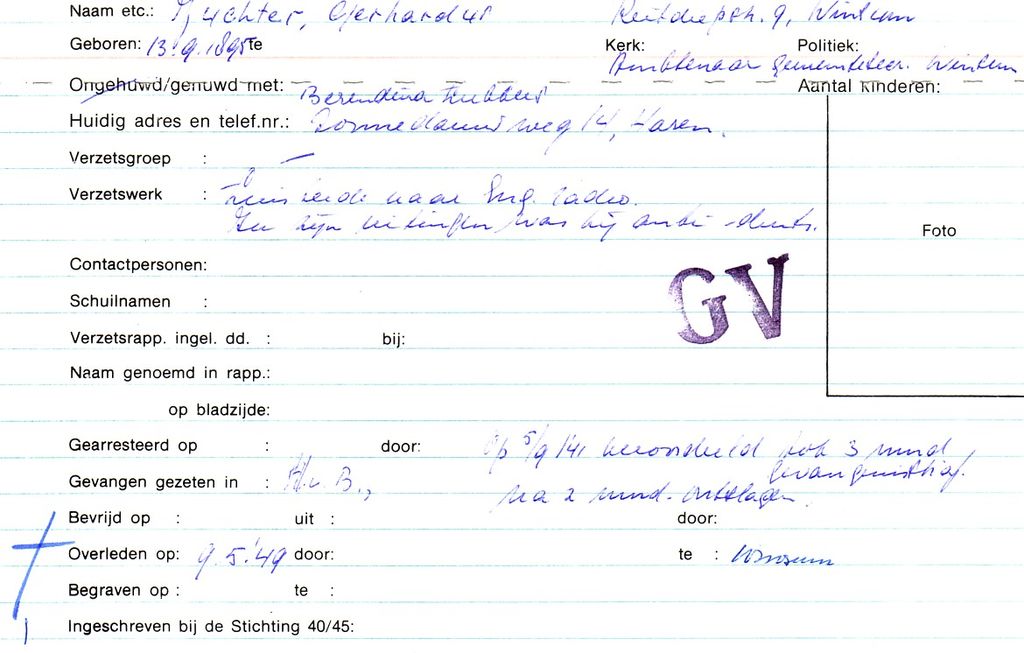 Naam etc.: Gerhardus Reitdiepstr. 9, Winsum
Geboren: 13.9.1895 te Kerk: Politiek:
Ambtenaar gemeentesecr. Winsum
Ongehuwd/gehuwd met: Berendina Aantal kinderen:
Huidig adres en telef.nr.: weg 14, Haren.
Verzetsgroep : —
Verzetswerk : luisterde naar Eng. radio.
In zijn uitingen was hij anti-duits.
Foto
Contactpersonen:
GV
Schuilnamen :
Verzetsrapp. ingel. dd. : bij:
Naam genoemd in rapp.:
op bladzijde:
Gearresteerd op : door: Op 5/9 '41 veroordeeld tot 3 mnd
gevangenisstraf.
Gevangen gezeten in : H.v.B., na 2 mnd. ontslagen.
Bevrijd op : uit : door:
Overleden op: 9.5.'49 door: te : Winsum
Begraven op : te :
Ingeschreven bij de Stichting 40/45: